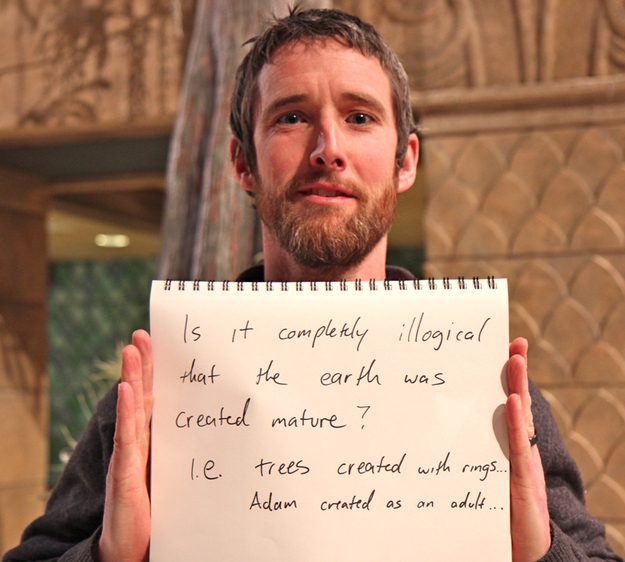 Is it completely illogical
that the earth was
created mature?
i.e. trees created with rings...
Adam created as an adult...